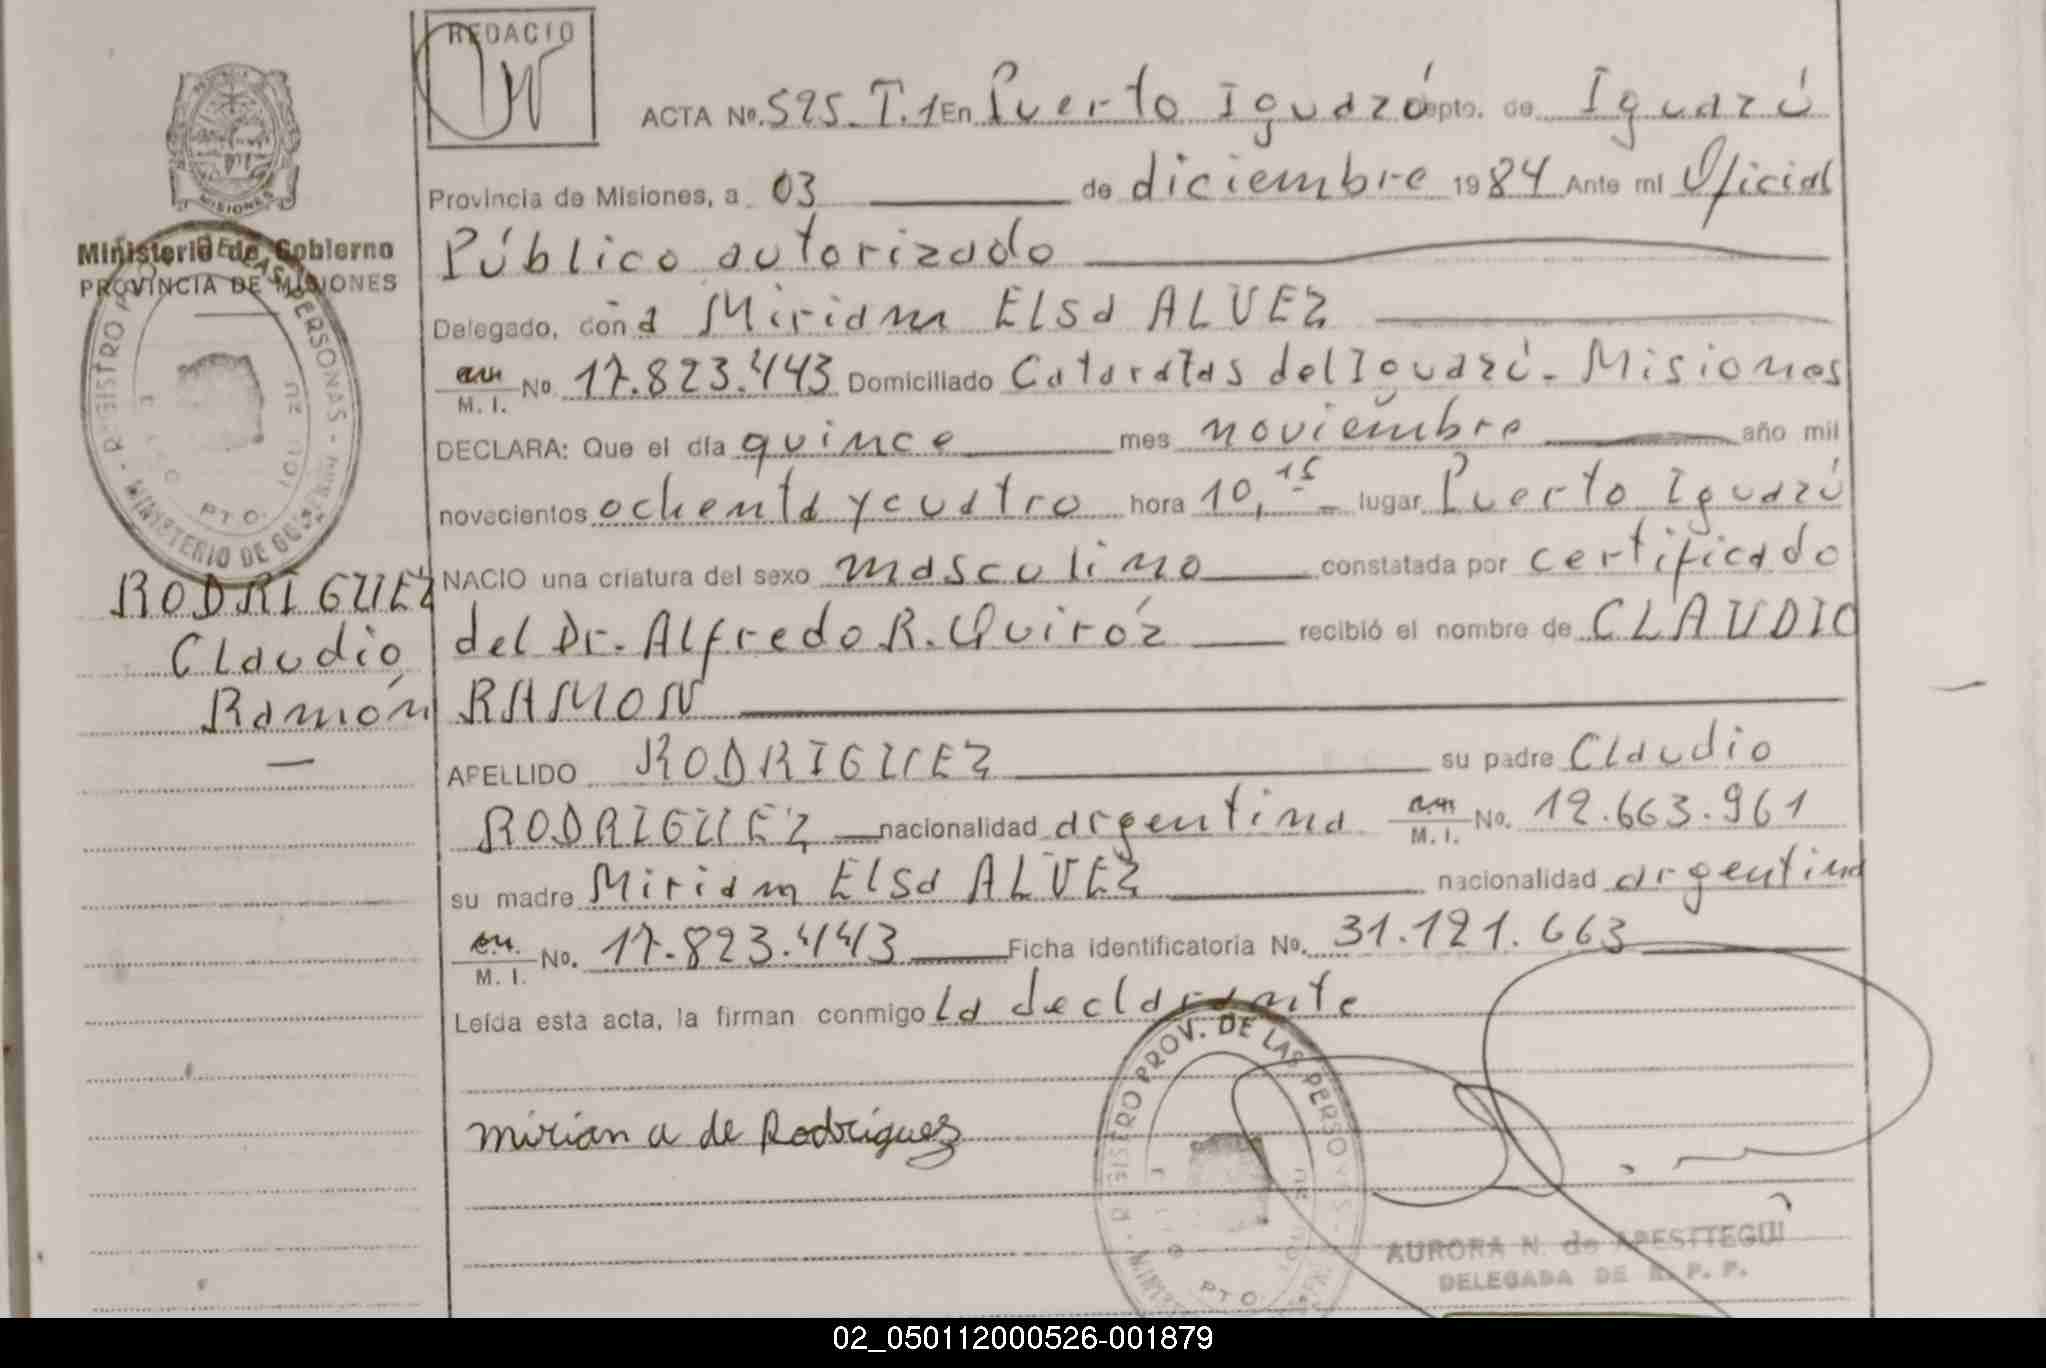 REDACIO
ACTA No. 525-T.1 En Puerto Iguazú Depto. de Iguazú
Provincia de Misiones, a 03 de diciembre 1984 Ante mí Oficial
Público autorizado
Delegado, don a Miriam Elsa ALVEZ
M. I. No. 17.823.443 Domiciliado Cataratas del Iguazú - Misiones
DECLARA: Que el día quince mes noviembre año mil
novecientos ochenta y cuatro hora 10,15 lugar Puerto Iguazú
NACIO una criatura del sexo masculino constatada por certificado
del Dr. Alfredo R. Quiróz recibió el nombre de CLAUDIO
RAMON
APELLIDO RODRIGUEZ su padre Claudio
RODRIGUEZ nacionalidad argentina M. I. No. 12.663.961
su madre Miriam Elsa ALVEZ nacionalidad argentina
M. I. No. 17.823.443 Ficha identificatoria No. 31.121.663
Leída esta acta, la firman conmigo la declarante
Mirian a de Rodríguez
PROVINCIA DE
MISIONES
Ministerio de Gobierno
PROVINCIA DE MISIONES
DE LAS PERSONAS - MINISTERIO DE
PTO.
RODRIGUEZ
Claudio
Ramón
REGISTRO PROV. DE LAS PERSONAS
PTO.
AURORA N. de APESTTEGUI
DELEGADA DE R. P. P.
02_050112000526-001879